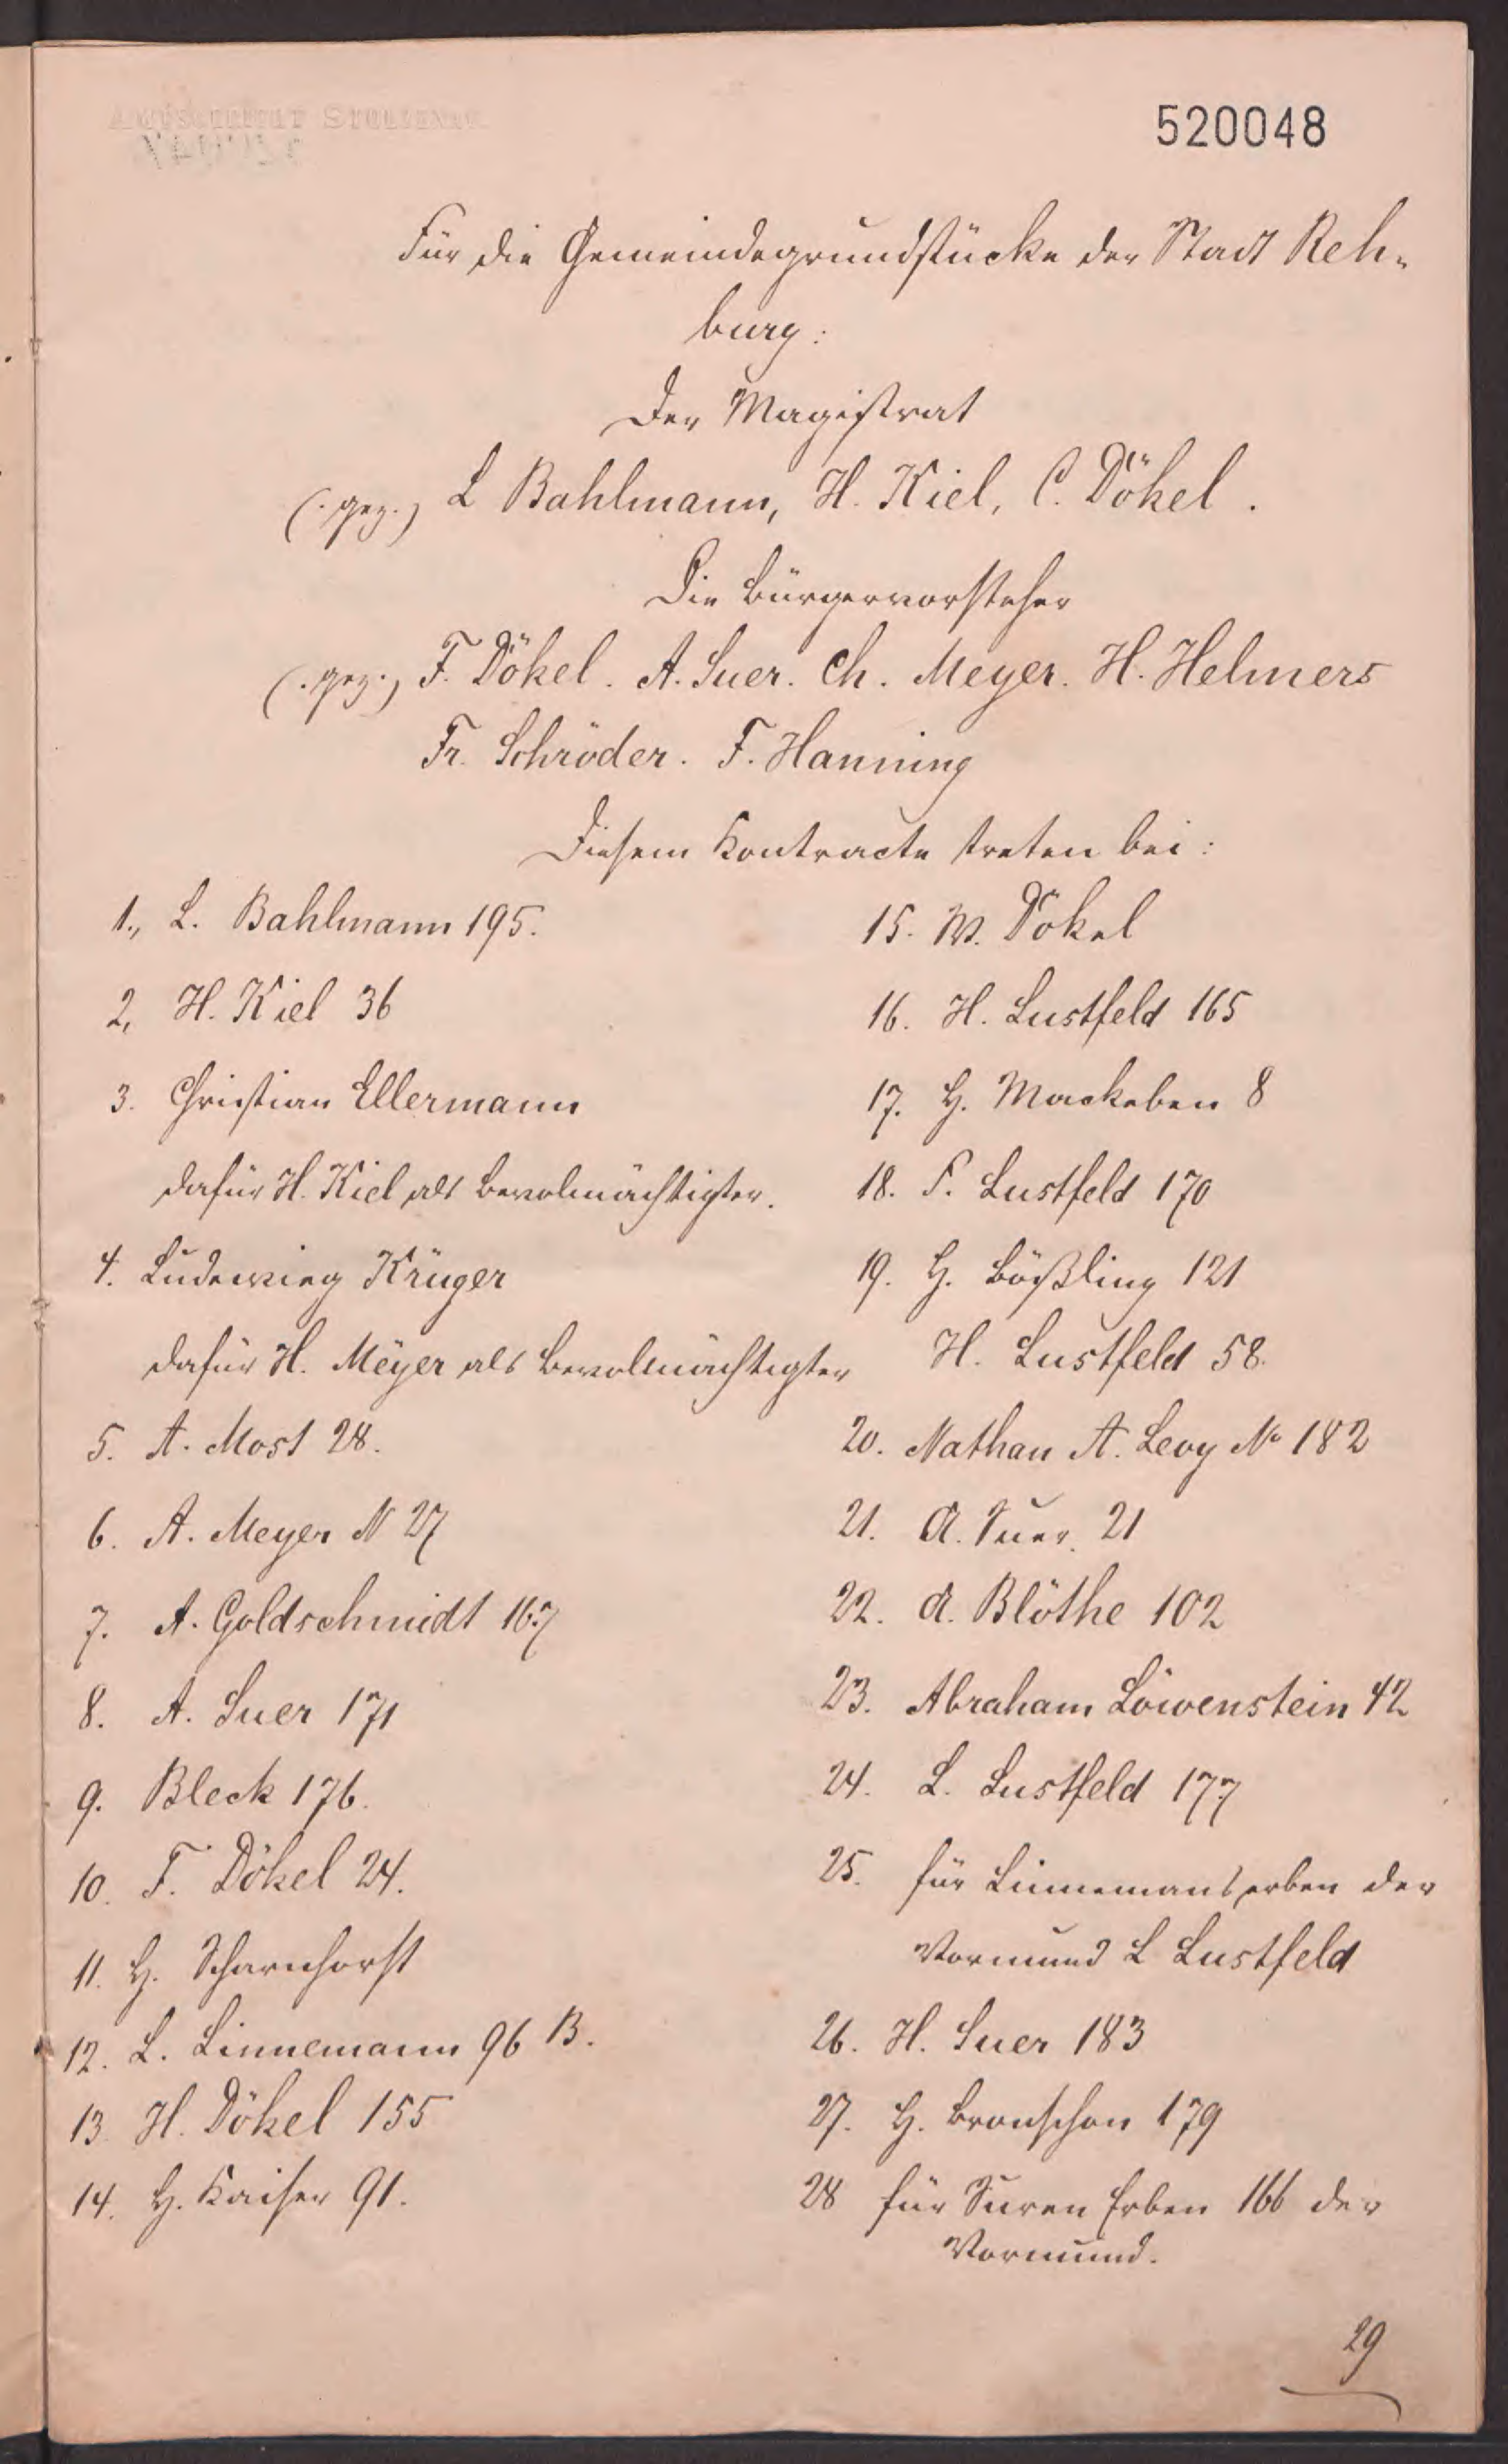 520048
Für die Gemeindegrundstücke der Stadt Reh-
burg:
Der Magistrat
(: gez :) L Bahlmann, H. Kiel, C. Dökel.
Die Bürgervorsteher
(: gez :) F. Dökel. A. Suer. Ch. Meyer. H. Helmers
Fr. Schröder. F. Hanning
Diesem Kontracte treten bei:
1., L. Bahlmann 195.
2, H. Kiel 36
3. Christian Ellermann
dafür H. Kiel als Bevolmächtigter.
4. Ludewieg Krüger
dafür H. Meÿer als Bevolmächtigter
5. A. Most 28.
6. A. Meyer N 27
7. A. Goldschmidt 167
8. A. Suer 171
9. Bleck 176.
10. F. Dökel 24.
11. H. Scharnhorst
12. L. Linnemann 96 B.
13. H. Dökel 155
14. H. Kaiser 91.
15. W. Dökel
16. H. Lustfeld 165
17. H. Mackeben 8
18. F. Lustfeld 170
19. H. Bößling 121
H. Lustfeld 58.
20. Nathan A. Levy No 182
21. A. Suer. 21
22. A. Blöthe 102
23. Abraham Löwenstein 42
24. L. Lustfeld 177
25. für Linnemans erben der
Vormund L Lustfeld
26. H. Suer 183
27. H. 179
28 für Suren Erben 166 der
Vormund.
29